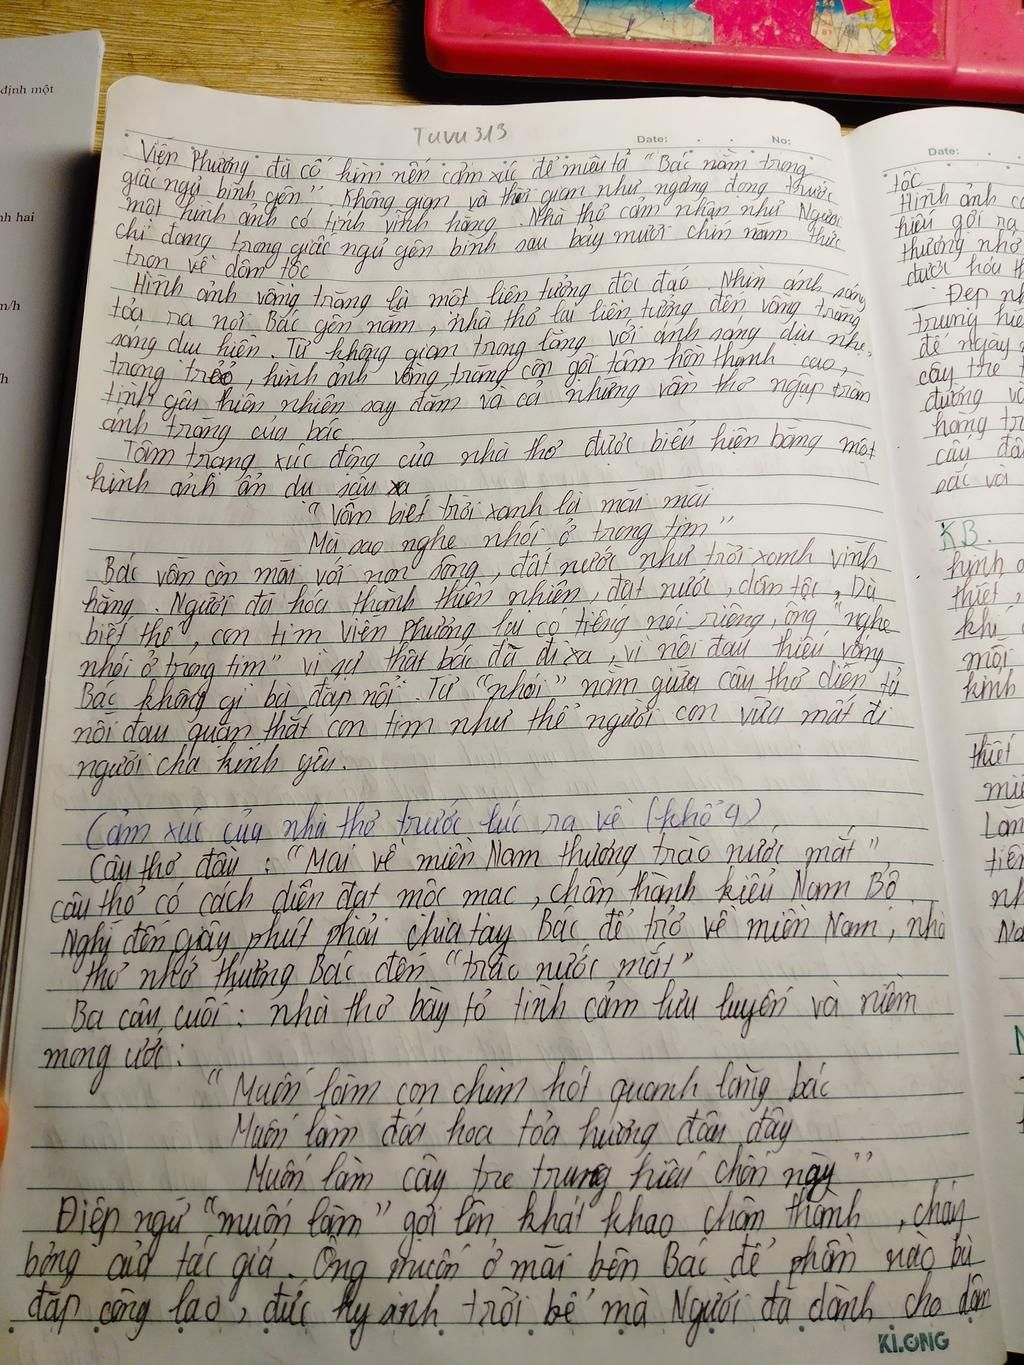 định một
nh hai
m/h
/h
Tuvu313
Date: No:
Viễn Phương đã cố kìm nén cảm xúc để miêu tả "Bác nằm trong
giấc ngủ bình yên". Không gian và thời gian như ngưng đọng trước
một hình ảnh có tính vĩnh hằng. Nhà thơ cảm nhận như Người
chỉ đang trong giấc ngủ yên bình sau bảy mươi chín năm thức
tron về dân tộc
Hình ảnh vầng trăng là một liên tưởng độc đáo. Nhìn ánh sáng
tỏa ra nơi Bác yên nằm, nhà thơ lại liên tưởng đến vầng trăng
sáng dịu hiền. Từ không gian trong lăng với ánh sáng dịu nhẹ,
trong trẻo, hình ảnh vầng trăng còn gợi tâm hồn thanh cao,
tình yêu thiên nhiên say đắm và cả những vần thơ ngập tràn
ánh trăng của bác
Tâm trạng xúc động của nhà thơ được biểu hiện bằng một
hình ảnh ẩn dụ sâu xa
"Vẫn biết trời xanh là mãi mãi
Mà sao nghe nhói ở trong tim"
Bác vẫn còn mãi với non sông, đất nước như trời xanh vĩnh
hằng. Người đã hóa thành thiên nhiên, đất nước, dân tộc, Dù
biết thế, con tim Viễn Phương lại có tiếng nói riêng, ông "nghe
nhói ở trong tim" vì sự thật bác đã đi xa, vì nỗi đau thiếu vắng
Bác không gì bù đắp nổi. Từ "nhói" nằm giữa câu thơ diễn tả
nỗi đau quặn thắt con tim như thể người con vừa mất đi
người cha kính yêu.
Cảm xúc của nhà thơ trước lúc ra về (khổ 4)
Câu thơ đầu: "Mai về miền Nam thương trào nước mắt",
câu thơ có cách diễn đạt mộc mạc, chân thành kiểu Nam Bộ.
Nghĩ đến giây phút phải chia tay Bác để trở về miền Nam, nhà
thơ nhớ thương Bác đến "trào nước mắt"
Ba câu cuối: nhà thơ bày tỏ tình cảm lưu luyến và niềm
mong ước:
"Muốn làm con chim hót quanh lăng bác
Muốn làm đóa hoa tỏa hương đâu đây
Muốn làm cây tre trung hiếu chốn này"
Điệp ngữ "muốn làm" gợi lên khát khao chân thành, cháy
bỏng của tác giả. Ông muốn ở mãi bên Bác để phần nào bù
đắp công lao, đức hy sinh trời bể mà Người đã dành cho dân
KLONG
Date:
tộc
Hình ảnh c
hiếu gợi ra
thương nhớ
được hóa th
Đẹp nh
trung hiế
để ngày
cây tre
đường v
hàng tr
câu đầ
sắc và
KB.
hình ả
thiết,
khí
mỗi
kính
thiết
miề
Lăn
tiên
nh
Na